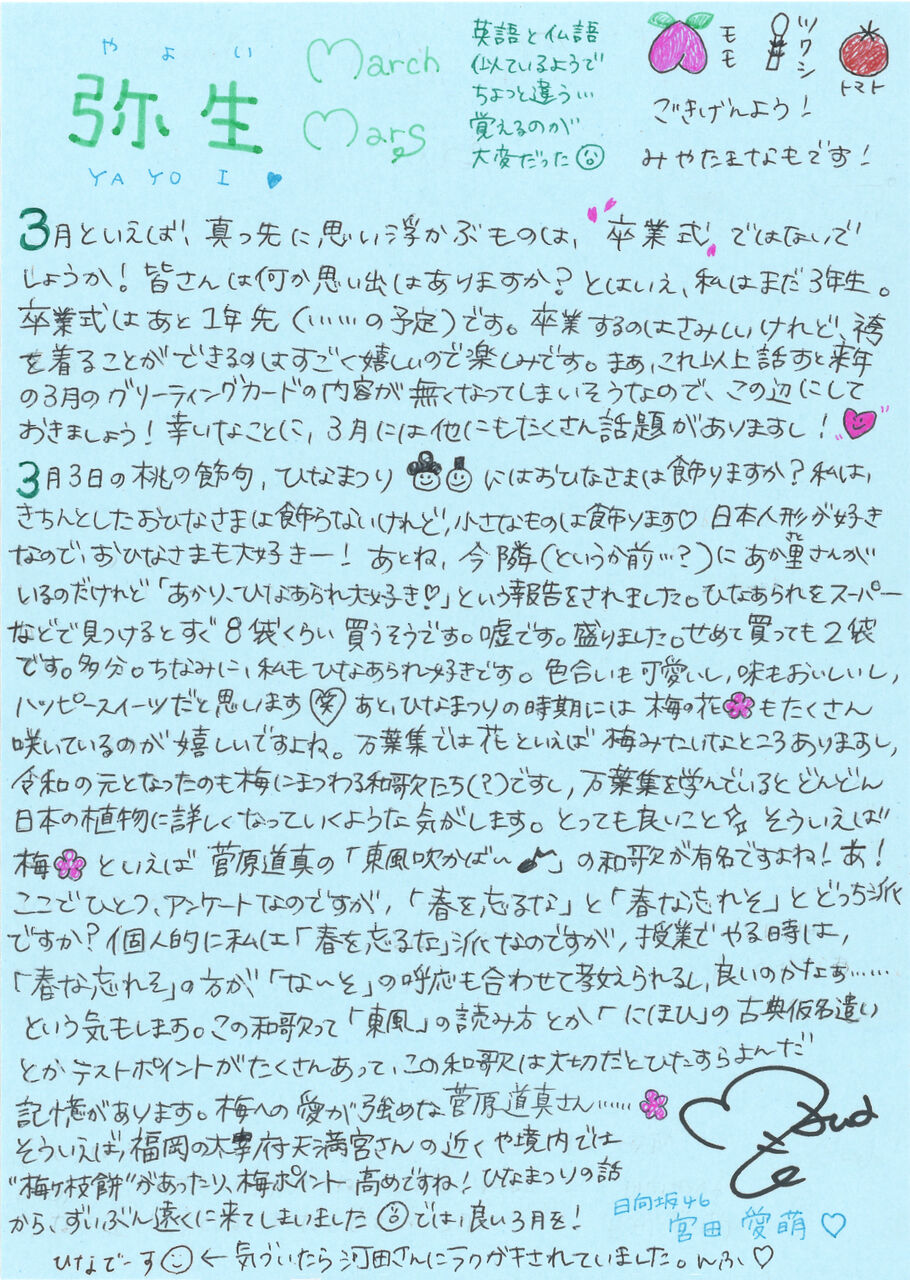 やよい
弥生
YAYOI
March
Mars
英語と仏語
似ているようで
ちょっと違う…
覚えるのが
大変だった
モモ
ツクシ
トマト
ごきげんよう！
みやたまなもです！
3月といえば、真っ先に思い浮かぶものは、"卒業式"ではないで
しょうか！皆さんは何か思い出はありますか？とはいえ、私はまだ3年生。
卒業式はあと1年先（……の予定）です。卒業するのはさみしいけれど、袴
を着ることができるのはすごく嬉しいので楽しみです。まぁ、これ以上話すと来年
の3月のグリーティングカードの内容が無くなってしまいそうなので、この辺にして
おきましょう！幸いなことに、3月には他にもたくさん話題がありますし！
3月3日の桃の節句、ひなまつりにはおひなさまは飾りますか？私は、
きちんとしたおひなさまは飾らないけれど、小さなものは飾ります♡日本人形が好き
なので、おひなさまも大好きー！あとね、今隣（というか前…？）にあか里さんが
いるのだけれど「あかり、ひなあられ大好き♡」という報告をされました。ひなあられをスーパー
などで見つけるとすぐ8袋くらい買うそうです。嘘です。盛りました。せめて買っても2袋
です。多分。ちなみに、私もひなあられ好きです。色合いも可愛いし、味もおいしいし、
ハッピースイーツだと思います(笑)あと、ひなまつりの時期には梅の花もたくさん
咲いているのが嬉しいですよね。万葉集では花といえば梅みたいなところありますし、
令和の元となったのも梅にまつわる和歌たち(？)ですし、万葉集を学んでいるとどんどん
日本の植物に詳しくなっていくような気がします。とっても良いこと☆そういえば
梅といえば菅原道真の「東風吹かば〜♪」の和歌が有名ですよね！あ！
ここでひとつ、アンケートなのですが、「春を忘るな」と「春な忘れそ」とどっち派
ですか？個人的に私は「春を忘るな」派なのですが、授業でやる時は、
「春な忘れそ」の方が「な〜そ」の呼応も合わせて教えられるし、良いのかなぁ……
という気もします。この和歌って「東風」の読み方とか「にほひ」の古典仮名遣い
とかテストポイントがたくさんあって、この和歌は大切だとひたすらよんだ
記憶があります。梅への愛が強めな菅原道真さん……
そういえば、福岡の太宰府天満宮さんの近くや境内では
"梅ヶ枝餅"があったり、梅ポイント高めですね！ひなまつりの話
から、ずいぶん遠くに来てしまいましたでは、良い3月を！
日向坂46
宮田愛萌♡
ひなでーす←気づいたら河田さんにラクガキされていました。んふ♡